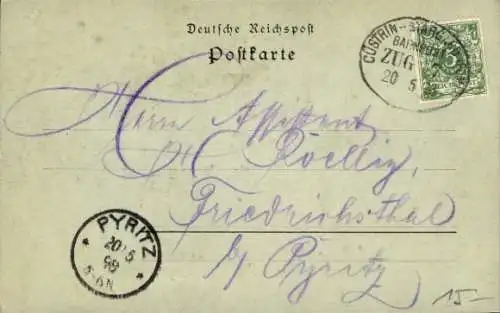 Deutsche Reichspost
Postkarte
CÜSTRIN - STARG
BAHNPOST
ZUG
20 5
Herrn Assistent
Roellig,
Friedrichsthal
b/ Pyritz
PYRITZ
20 5
99
5-6N
15.-